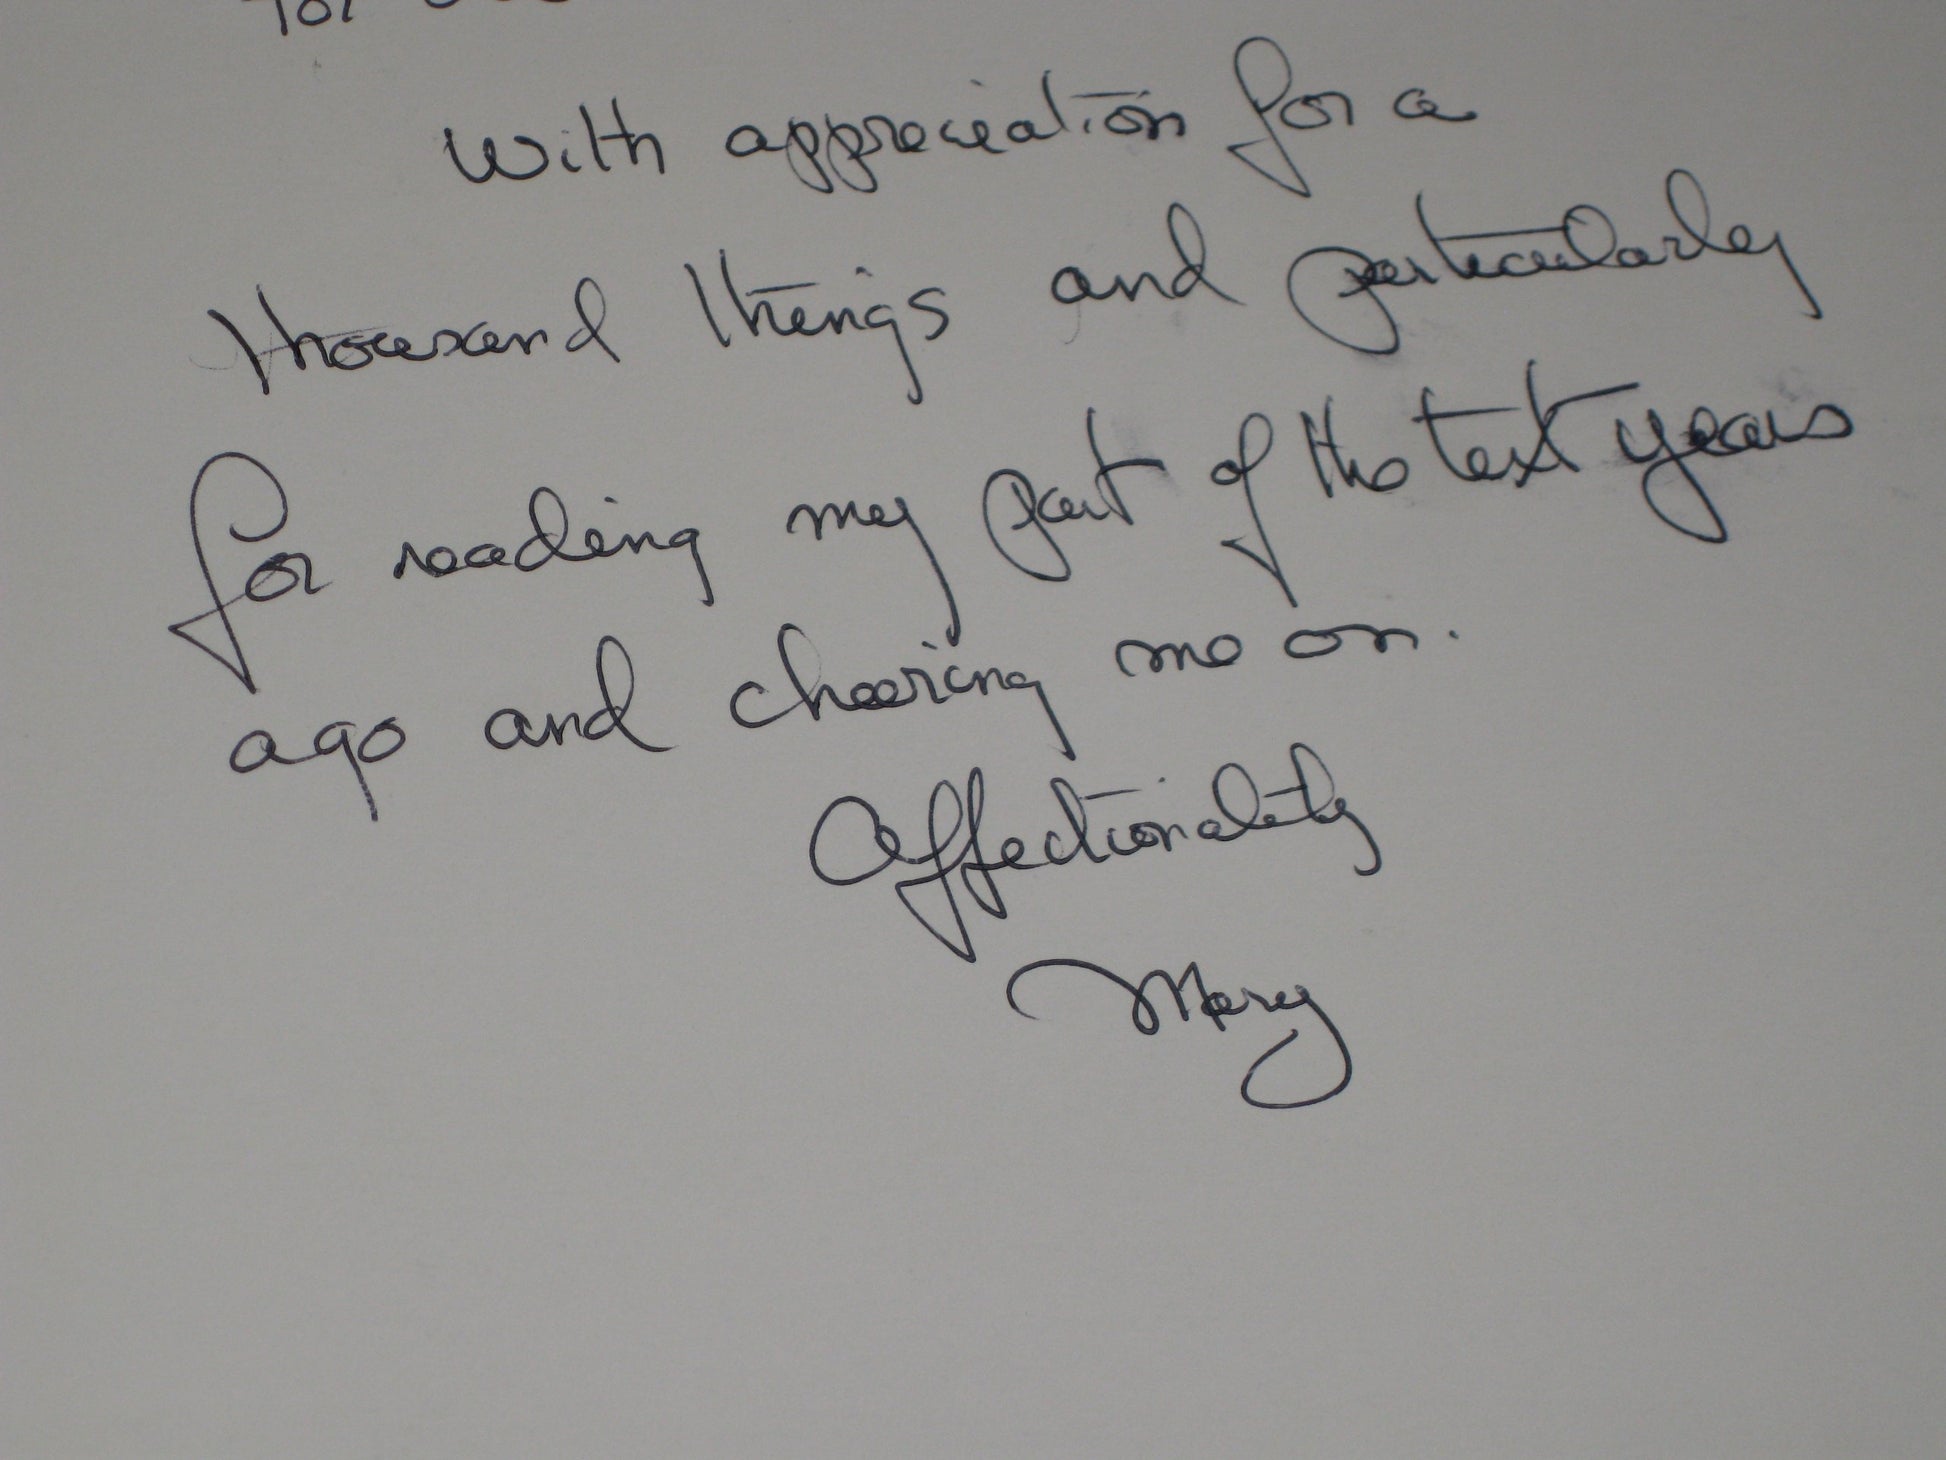 For
With appreciation for a
thousand things and particularly
for reading my part of the text years
ago and cheering me on.
Affectionately
Mary